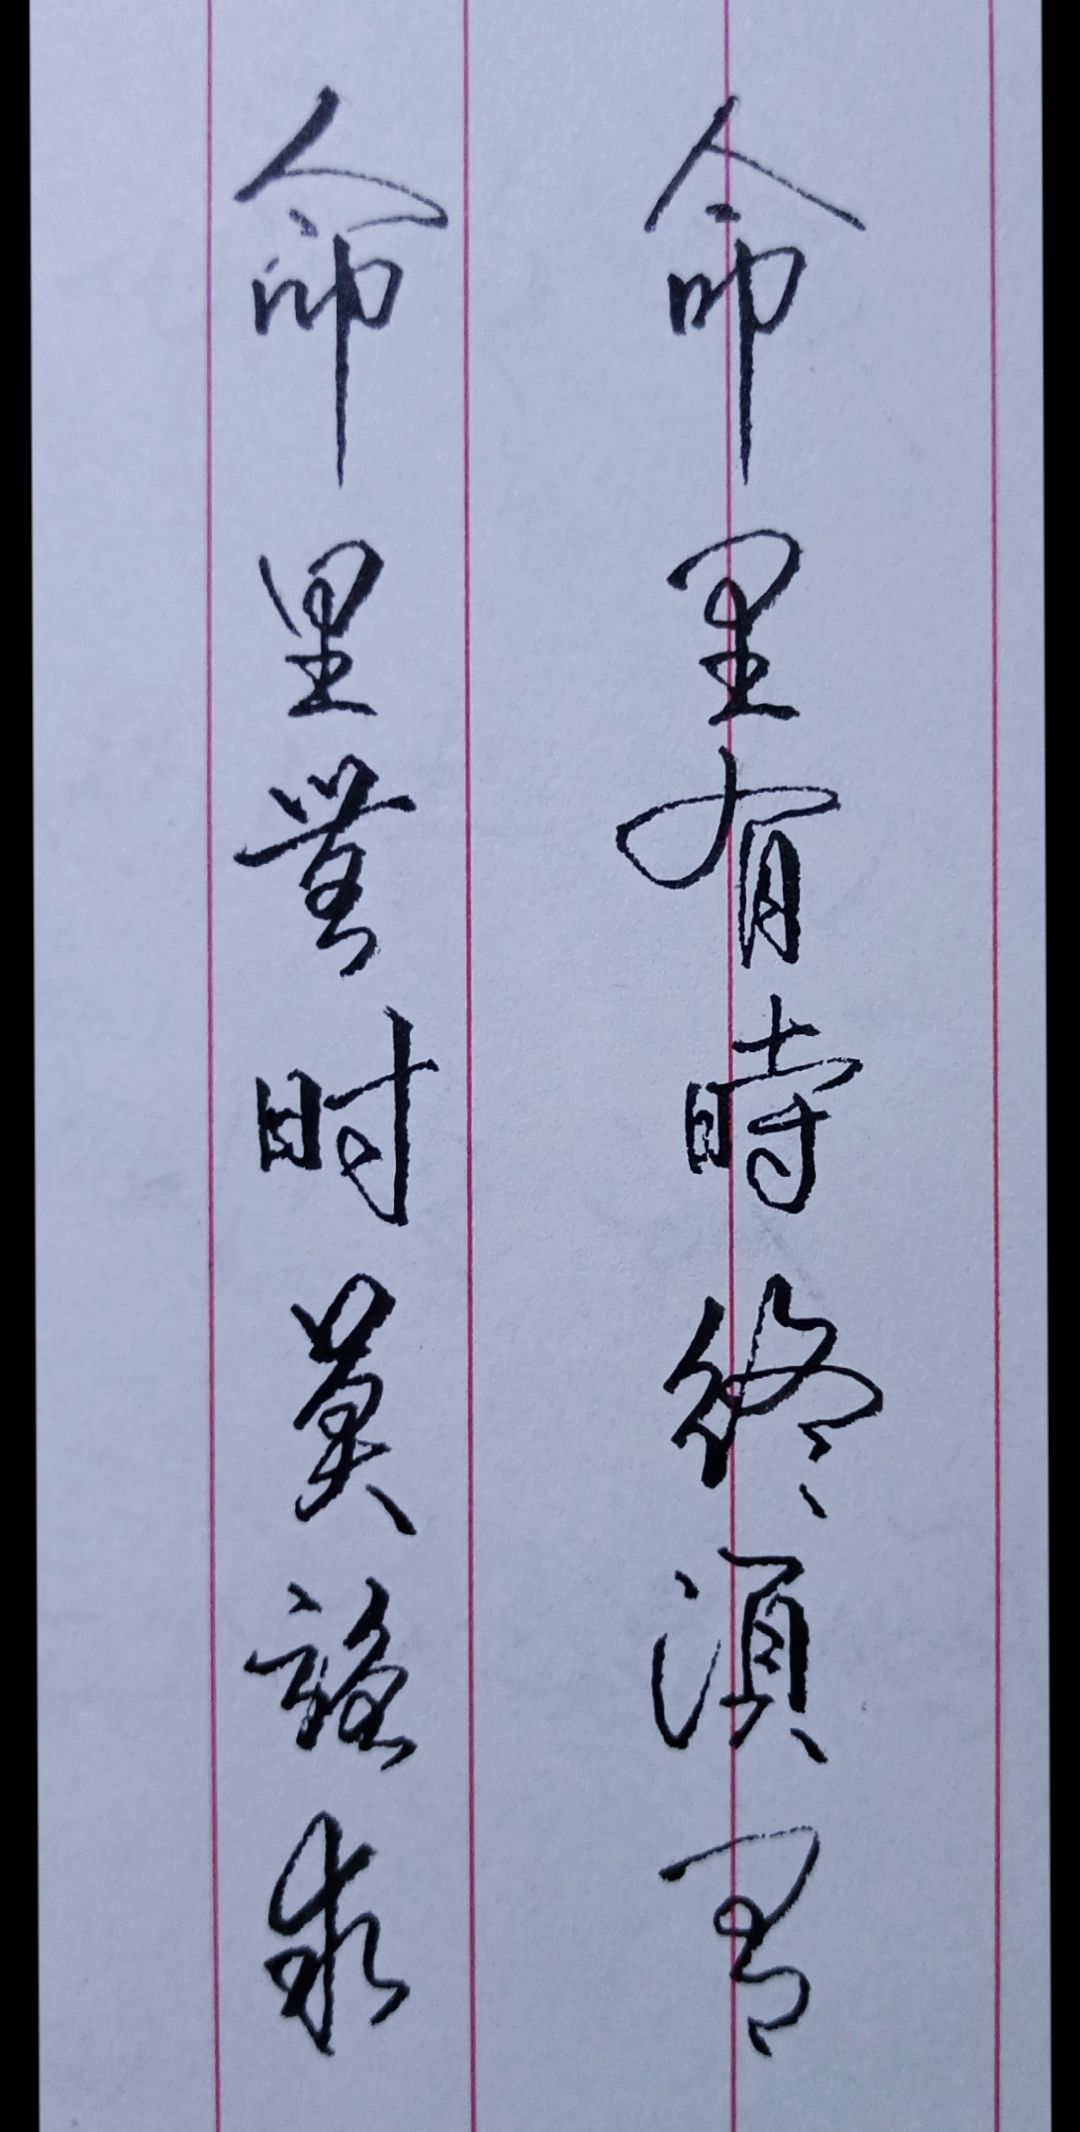 命里有時終須有
命里無时莫強求